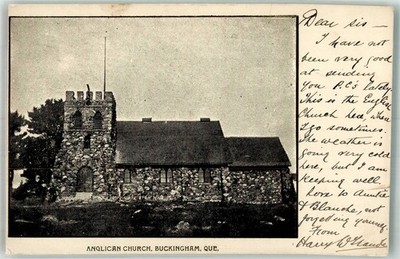 Dear sis—
I have not
been very good
at sending
you P.C's lately
This is the English
Church here, where
I go sometimes.
The weather is
going very cold
here, but I am
keeping well
love to Auntie
& Blanche, not
forgetting young
From
Harry
ANGLICAN CHURCH, BUCKINGHAM, QUE.